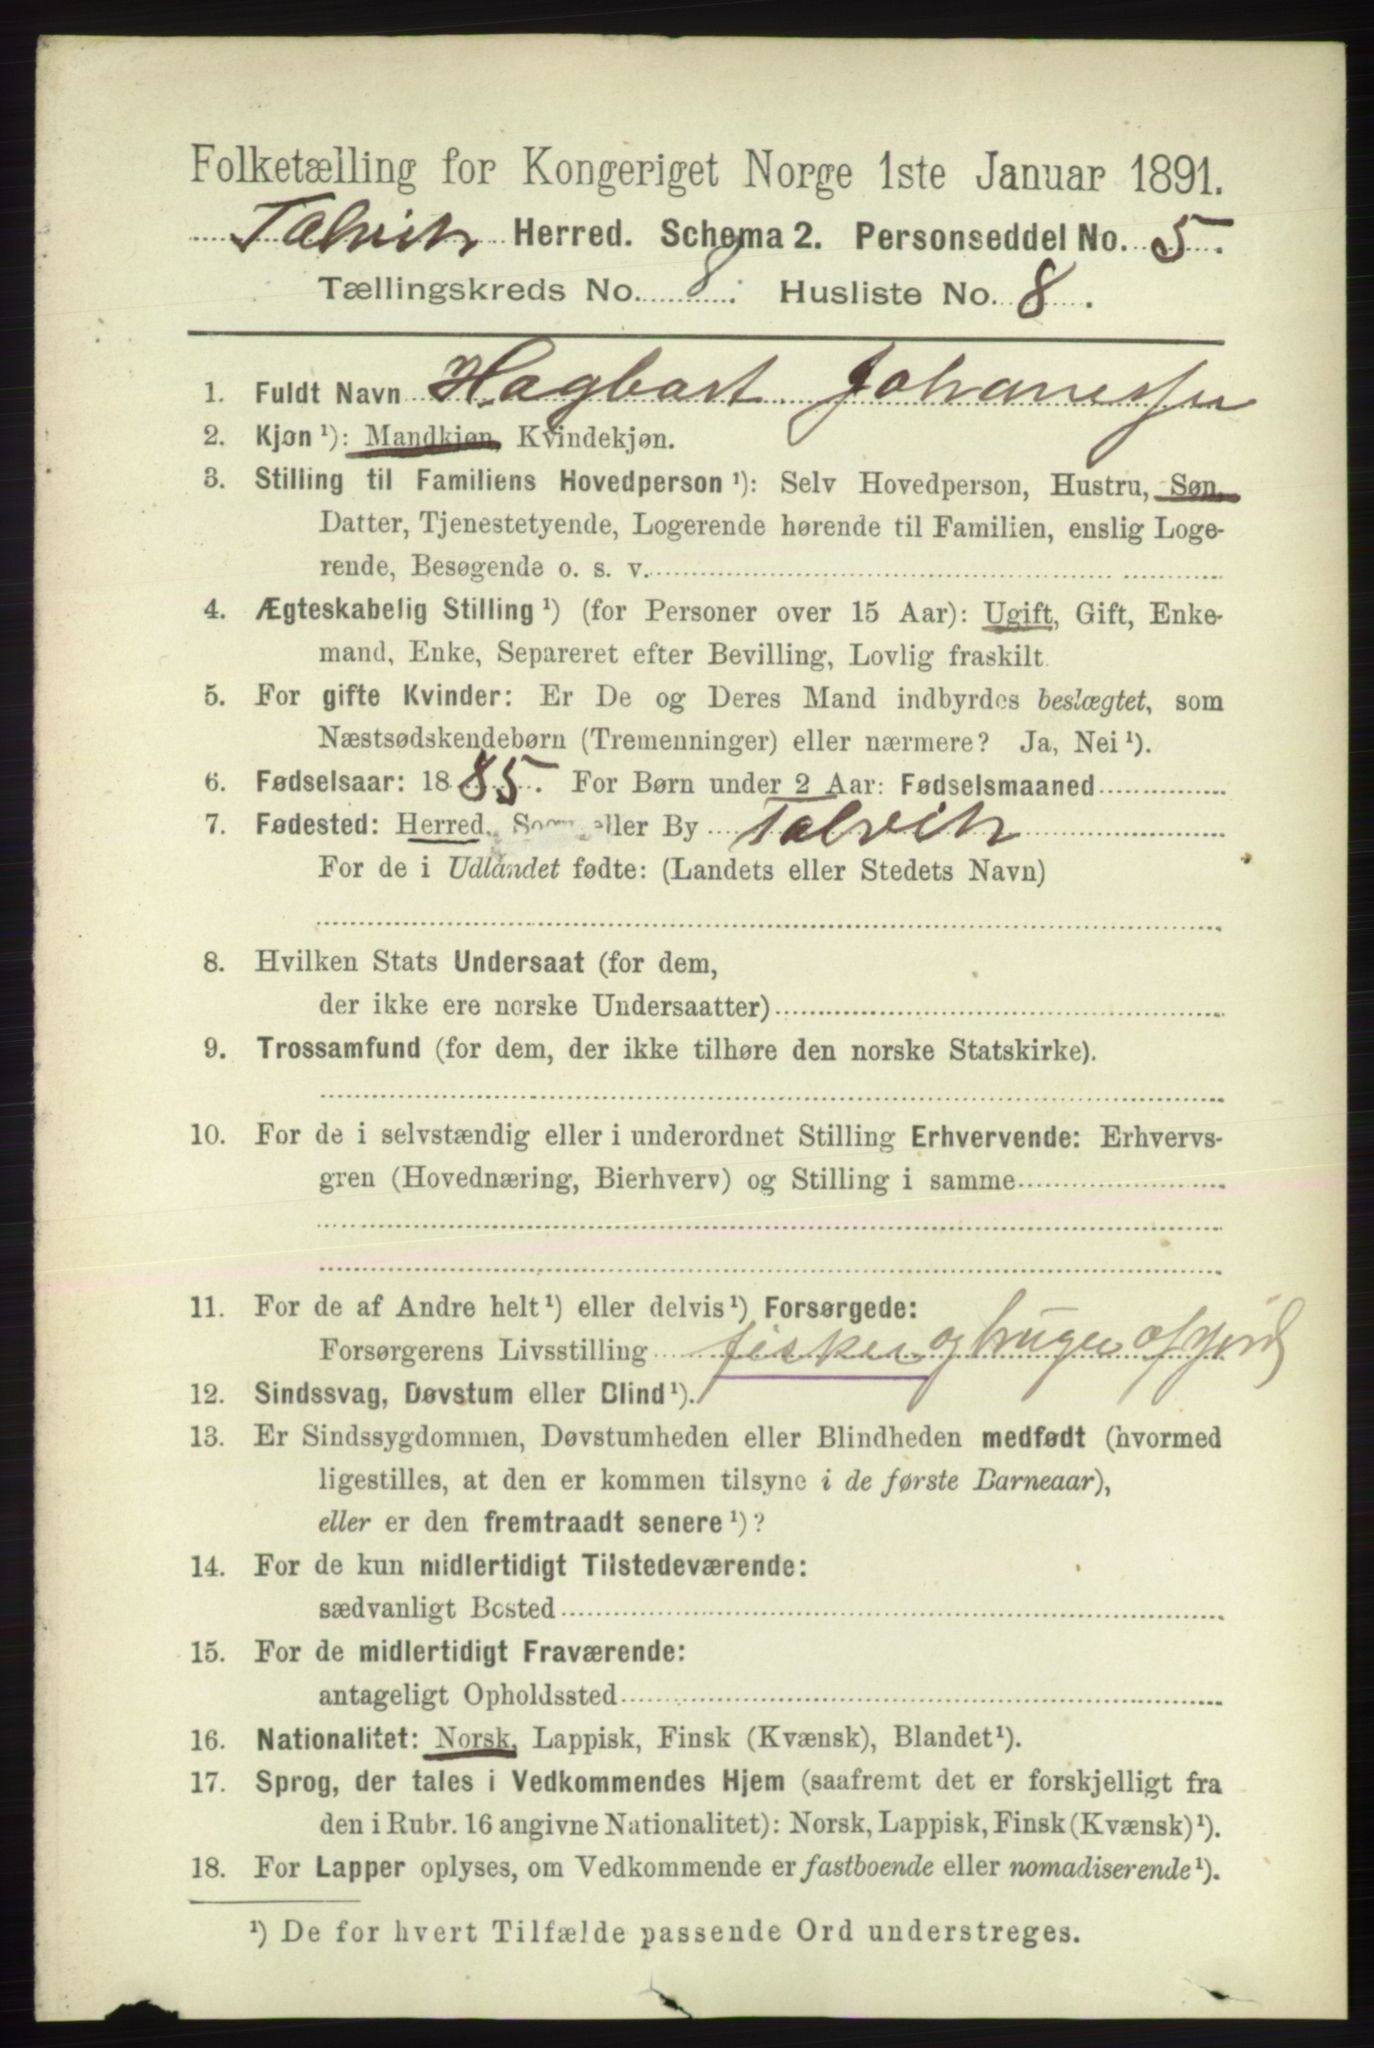 Folketælling for Kongeriget Norge 1ste Januar 1891.
Talvik Herred. Schema 2. Personseddel No. 5.
Tællingskreds No. 8. Husliste No. 8.
1. Fuldt Navn Hagbart Johannessen
2. Kjøn ¹): Mandkjøn, Kvindekjøn.
3. Stilling til Familiens Hovedperson ¹): Selv Hovedperson, Hustru, Søn,
Datter, Tjenestetyende, Logerende hørende til Familien, enslig Loge-
rende, Besøgende o. s. v.
4. Ægteskabelig Stilling ¹) (for Personer over 15 Aar): Ugift, Gift, Enke-
mand, Enke, Separeret efter Bevilling, Lovlig fraskilt.
5. For gifte Kvinder: Er De og Deres Mand indbyrdes beslægtet, som
Næstsødskendebørn (Tremenninger) eller nærmere? Ja, Nei ¹).
6. Fødselsaar: 1885. For Børn under 2 Aar: Fødselsmaaned
7. Fødested: Herred, Sogn eller By Talvik
For de i Udlandet fødte: (Landets eller Stedets Navn)
8. Hvilken Stats Undersaat (for dem,
der ikke ere norske Undersaatter)
9. Trossamfund (for dem, der ikke tilhøre den norske Statskirke).
10. For de i selvstændig eller i underordnet Stilling Erhvervende: Erhvervs-
gren (Hovednæring, Bierhverv) og Stilling i samme
11. For de af Andre helt ¹) eller delvis ¹) Forsørgede:
Forsørgerens Livsstilling fisker og bruger af jord
12. Sindssvag, Døvstum eller Blind ¹).
13. Er Sindssygdommen, Døvstumheden eller Blindheden medfødt (hvormed
ligestilles, at den er kommen tilsyne i de første Barneaar),
eller er den fremtraadt senere ¹)?
14. For de kun midlertidigt Tilstedeværende:
sædvanligt Bosted
15. For de midlertidigt Fraværende:
antageligt Opholdssted
16. Nationalitet: Norsk, Lappisk, Finsk (Kvænsk), Blandet ¹).
17. Sprog, der tales i Vedkommendes Hjem (saafremt det er forskjelligt fra
den i Rubr. 16 angivne Nationalitet): Norsk, Lappisk, Finsk (Kvænsk) ¹).
18. For Lapper oplyses, om Vedkommende er fastboende eller nomadiserende ¹).
¹) De for hvert Tilfælde passende Ord understreges.